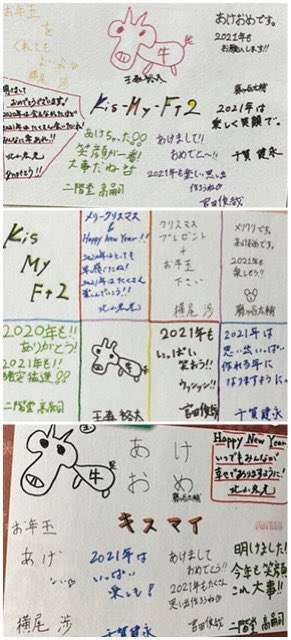 お年玉
を
くれても
よいよ
横尾 渉
牛
玉森裕太
あけおめです。
2021年も
お願いします!!
藤ヶ谷太輔
明けまして
おめでとうございます!
北山宏光
Kis-My-Ft2
2021年は
楽しく笑顔で。
千賀 健永
あけちゃった
笑顔が一番!
大事だねな
二階堂 高嗣
あけまして!!
おめでとー!!
2021年も楽しい思い出
作ろうね
宮田俊哉
Kis
My
Ft2
メリークリスマス
&
Happy New Year!!
2021年はたくさん
北山宏光
クリスマス
プレゼント
+
お年玉
下さい
横尾 渉
メリクリです。
あけおめです。
2021年も
楽しもう!!
藤ヶ谷太輔
2020年も!!
ありがとう!
2021年も!!
二階堂 高嗣
牛
玉森 裕太
2021年も
いっぱい
笑おう!!
宮田俊哉
2021年は
思い出いっぱい
作れる年に
なりますように。
千賀健永
牛
あけ
おめ
藤ヶ谷太輔
Happy New Year
いつでもみんなが
幸せでありますように!
北山宏光
キスマイ
お年玉
あげ
横尾 渉
2021年は
いっぱい
楽しも!
千賀健永
あけまして
おめでとう!!
2021年もたくさん
思い出作ろうね
宮田俊哉
明けました!
今年も笑顔
これ大事!!
二階堂 高嗣